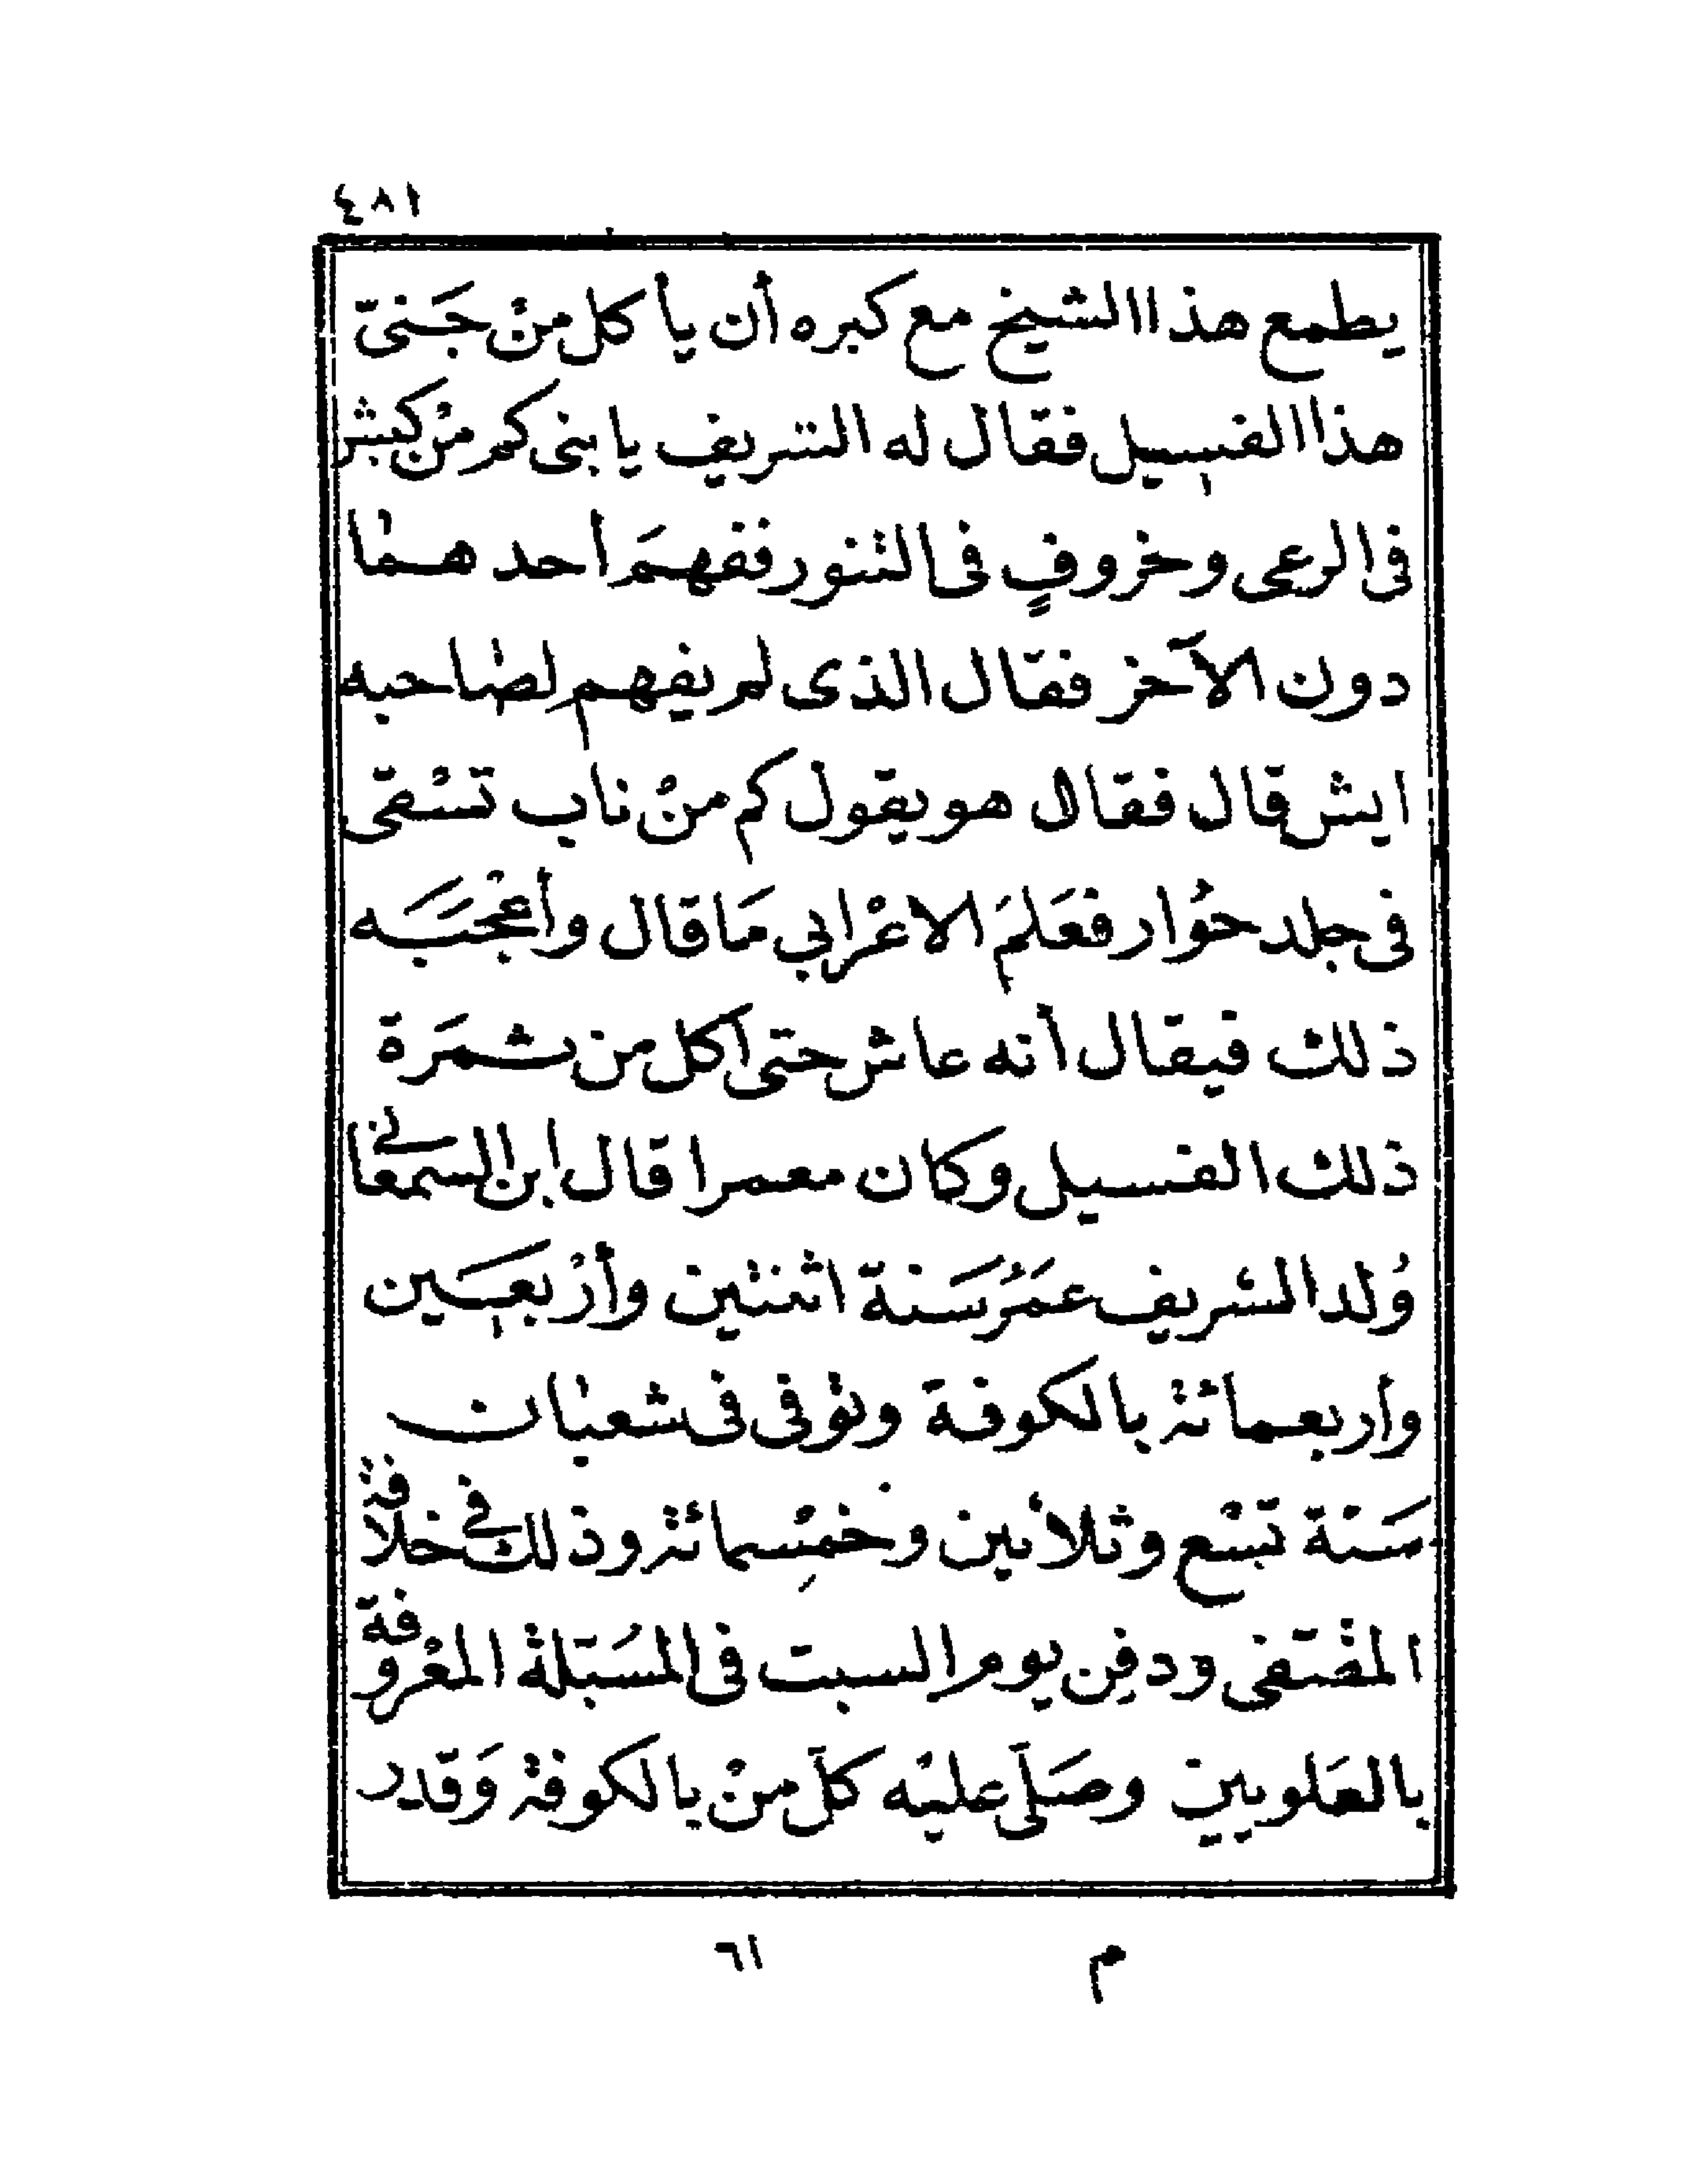 ٤٨١
يطمع هذا الشيخ مع كبره أن يأكل منْ جَنىّ
هذا الفسيل فقال له الشريف يا بنى كم منْ كبش
فى الرعى وخروفٍ فى التنور ففهمَ أحدهما
دون الآخر فقال الذى لم يفهم لصاحبه
ايش قال فقال هو يقول كم منْ ناب تسْقى
فى جلد حُوار فعَلمَ الاعْرابي مَا قال وأعْجَبَه
ذلك فيقال أنه عاش حتى اكل من ثمَرة
ذلك الفسيل وكان معمرا قال ابن السمعانى
وُلد الشريف عمَرُ سَنة اثنتين وأرْبعَين
وأربعمائة بالكوفة وتوفى فى شعبان
سَنة تسْع وثلاثين وخمسْمائة وذلك فى خلافة
المقتفى ودفِن يوم السبت فى المسُبّلة المعْروفة
بالعَلويين وصَلّى عليْه كلّ منْ بالكوفة وَقدر
م ٦١